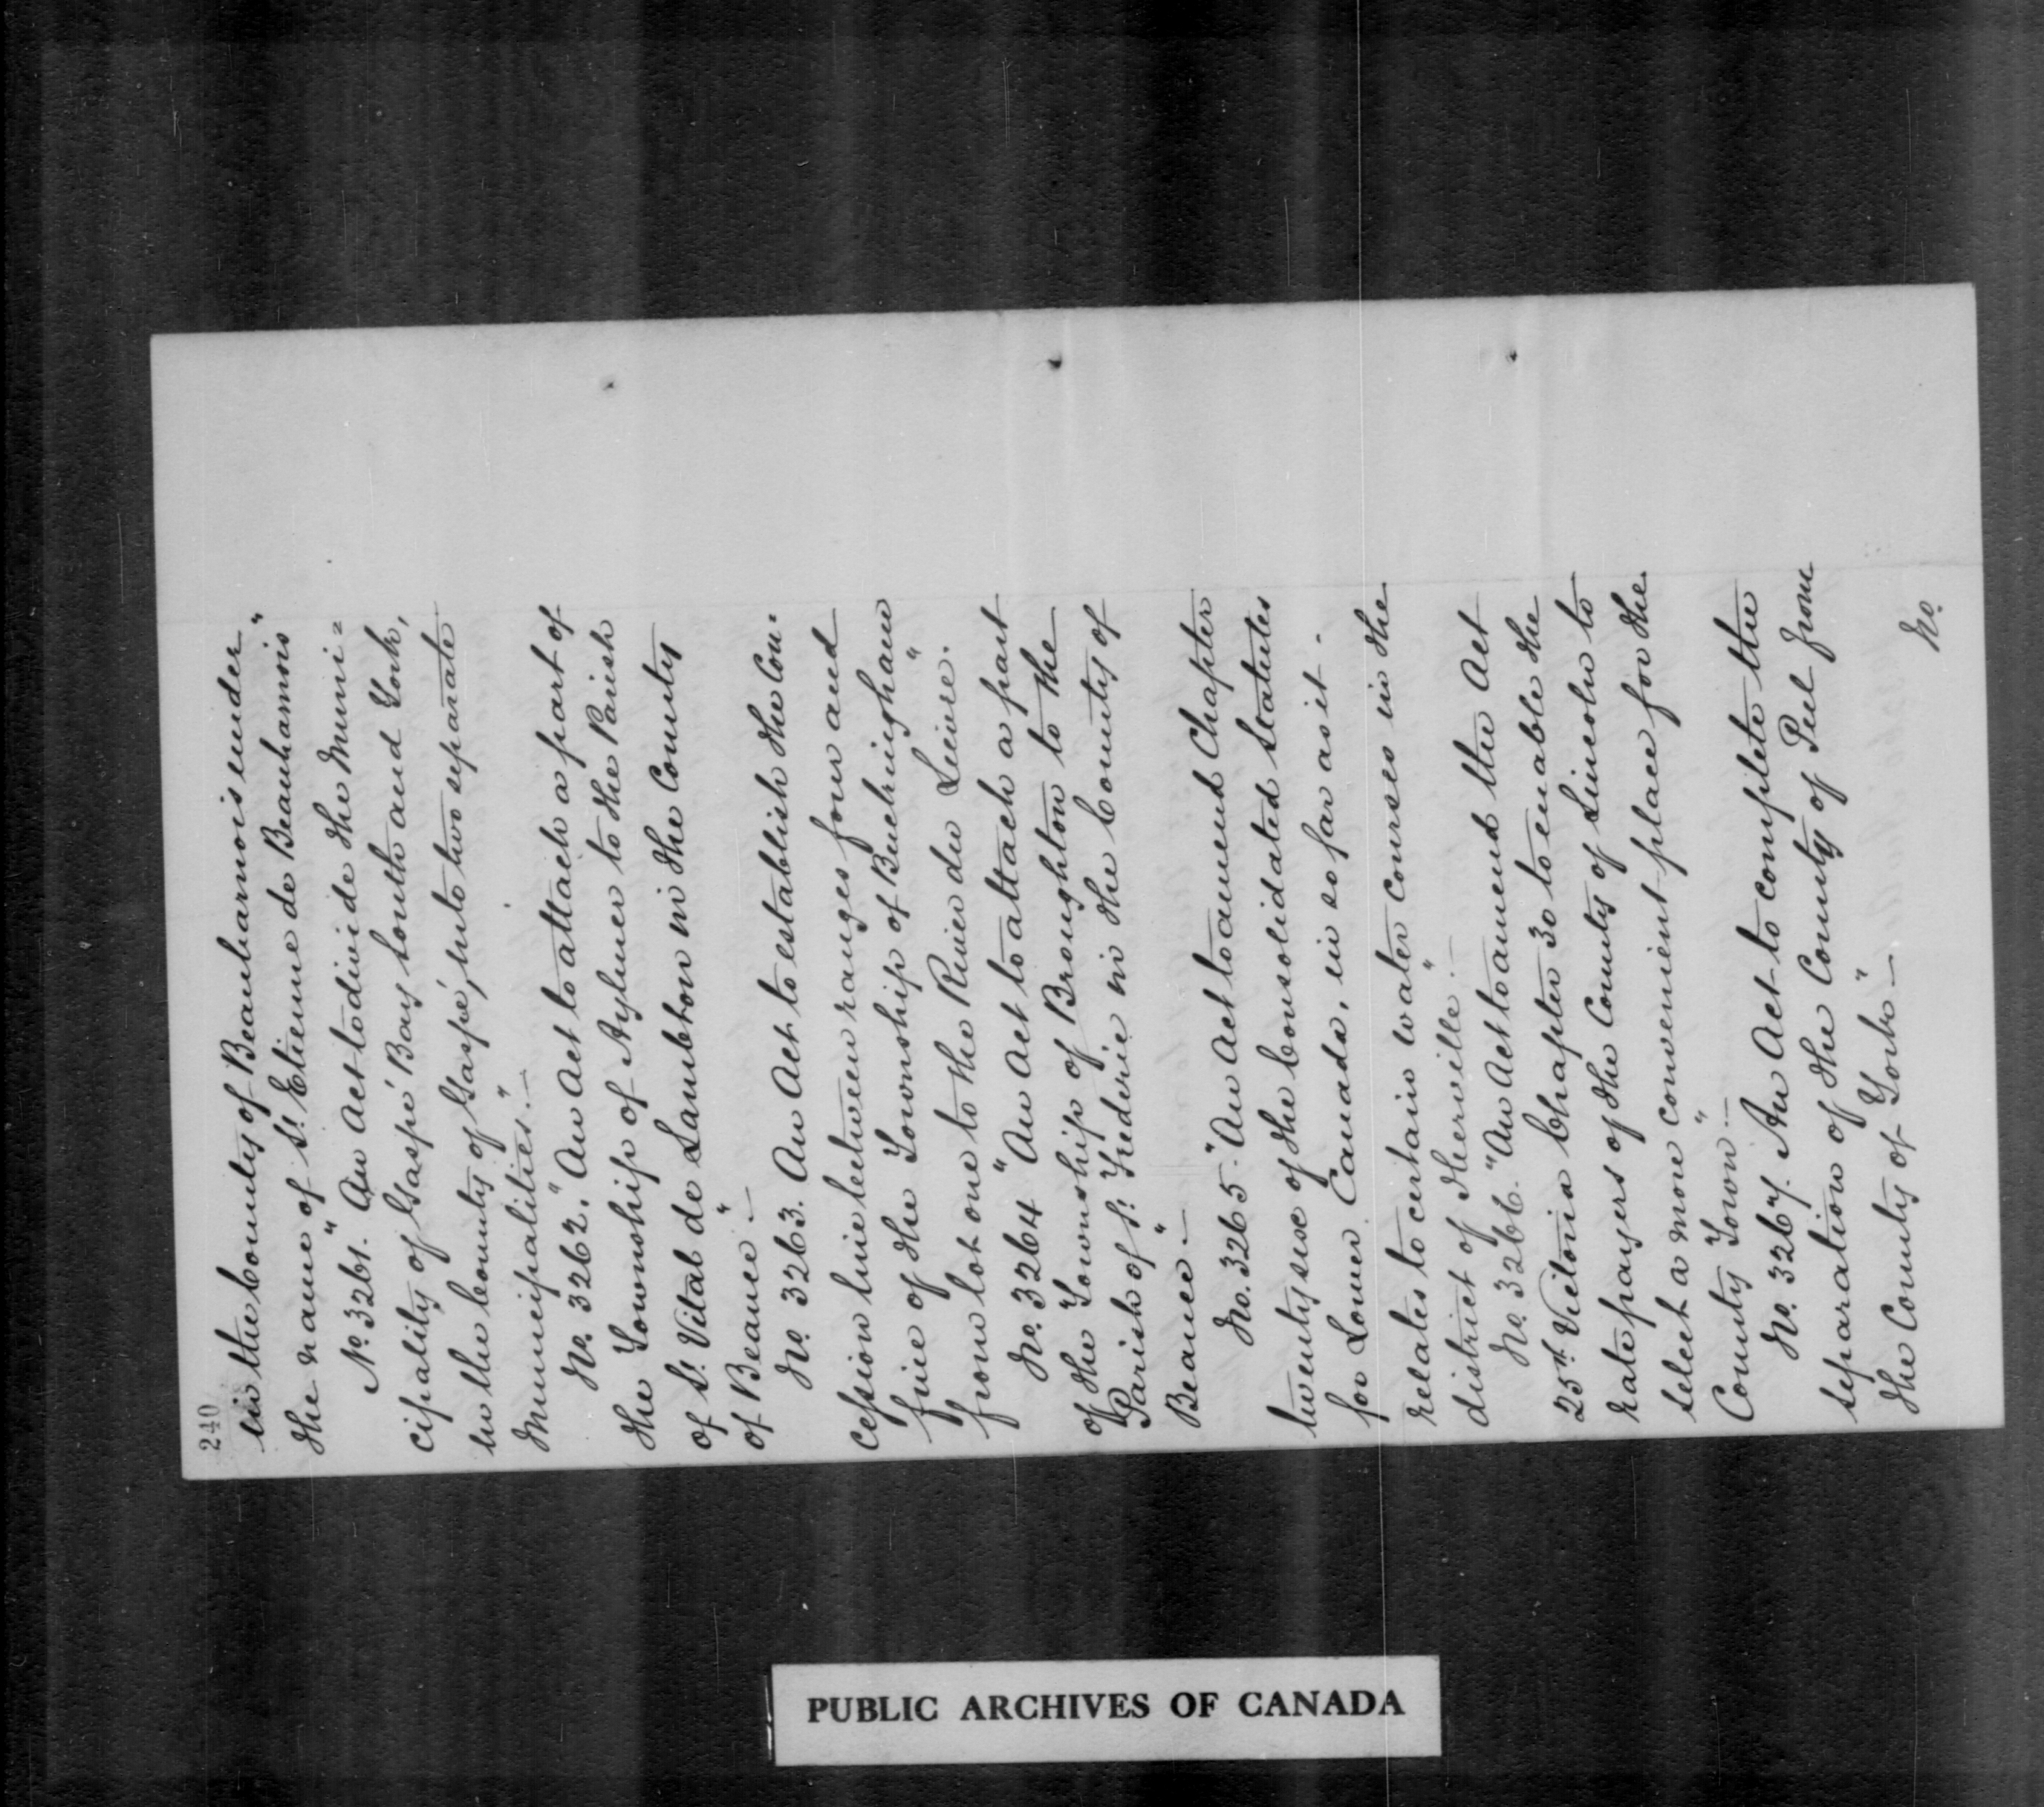 240
in the County of Beauharnois under
the name of St. Etienne de Beauharnois"
No. 3261. "An Act to divide the Muni=
cipality of Gaspé Bay South and York,
in the County of Gaspé, into two separate
Municipalities." —
No. 3262. "An Act to attach a part of
the Township of Aylmer to the Parish
of St. Vital de Lambton in the County
of Beauce" —
No. 3263. An Act to establish the Con-
cession line between ranges four and
five of the Township of Buckingham
from lot one to the River du Lievre."
No. 3264 "An Act to attach a part
of the Township of Broughton to the
Parish of St. Frederic in the County of
Beauce" —
No. 3265. "An Act to amend Chapter
twenty six of the Consolidated Statutes
for Lower Canada, in so far as it
relates to certain water courses in the
district of Iberville". —
No. 3266. "An Act to amend the Act
25th. Victoria Chapter 30 to enable the
ratepayers of the County of Lincoln to
select a more convenient place for the
County Town" —
No. 3267. An Act to complete the
separation of the County of Peel from
the County of York" —
No.
PUBLIC ARCHIVES OF CANADA